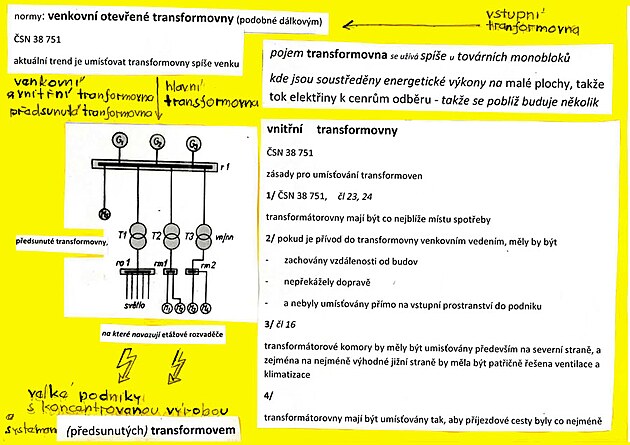 normy: venkovní otevřené transformovny (podobné dálkovým)
ČSN 38 751
aktuální trend je umísťovat transformovny spíše venku
vstupní
tranformovna
venkovní
a vnitřní tranformovna
předsunutá tranformovna
hlavní
transformovna
pojem transformovna se užívá spíše u továrních monobloků
kde jsou soustředěny energetické výkony na malé plochy, takže
tok elektřiny k cenrům odběru - takže se poblíž buduje několik
G1 G2 G3
r1
T1 T2 T3 vn/nn
předsunuté transformovny,
ro1 rm1 rm2
světlo
na které navazují etážové rozvaděče
velké podniky
s koncentrovanou výrobou
a systémem
(předsunutých) transformovem
vnitřní transformovny
ČSN 38 751
zásady pro umisťování transformoven
1/ ČSN 38 751, čl 23, 24
transformátorovny mají být co nejblíže místu spotřeby
2/ pokud je přívod do transformovny venkovním vedením, měly by být
- zachovány vzdálenosti od budov
- nepřekážely dopravě
- a nebyly umísťovány přímo na vstupní prostranství do podniku
3/ čl 16
transformátorové komory by měly být umisťovány především na severní straně, a
zejména na nejméně výhodné jižní straně by měla být patřičně řešena ventilace a
klimatizace
4/
transformátorovny mají být umisťovány tak, aby příjezdové cesty byly co nejméně